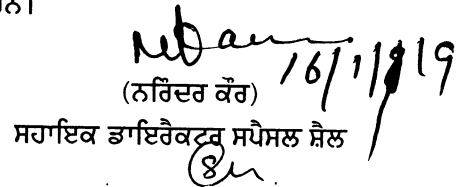 16/1/19
(ਨਰਿੰਦਰ ਕੌਰ)
ਸਹਾਇਕ ਡਾਇਰੈਕਟਰ ਸਪੈਸਲ ਸ਼ੈਲ